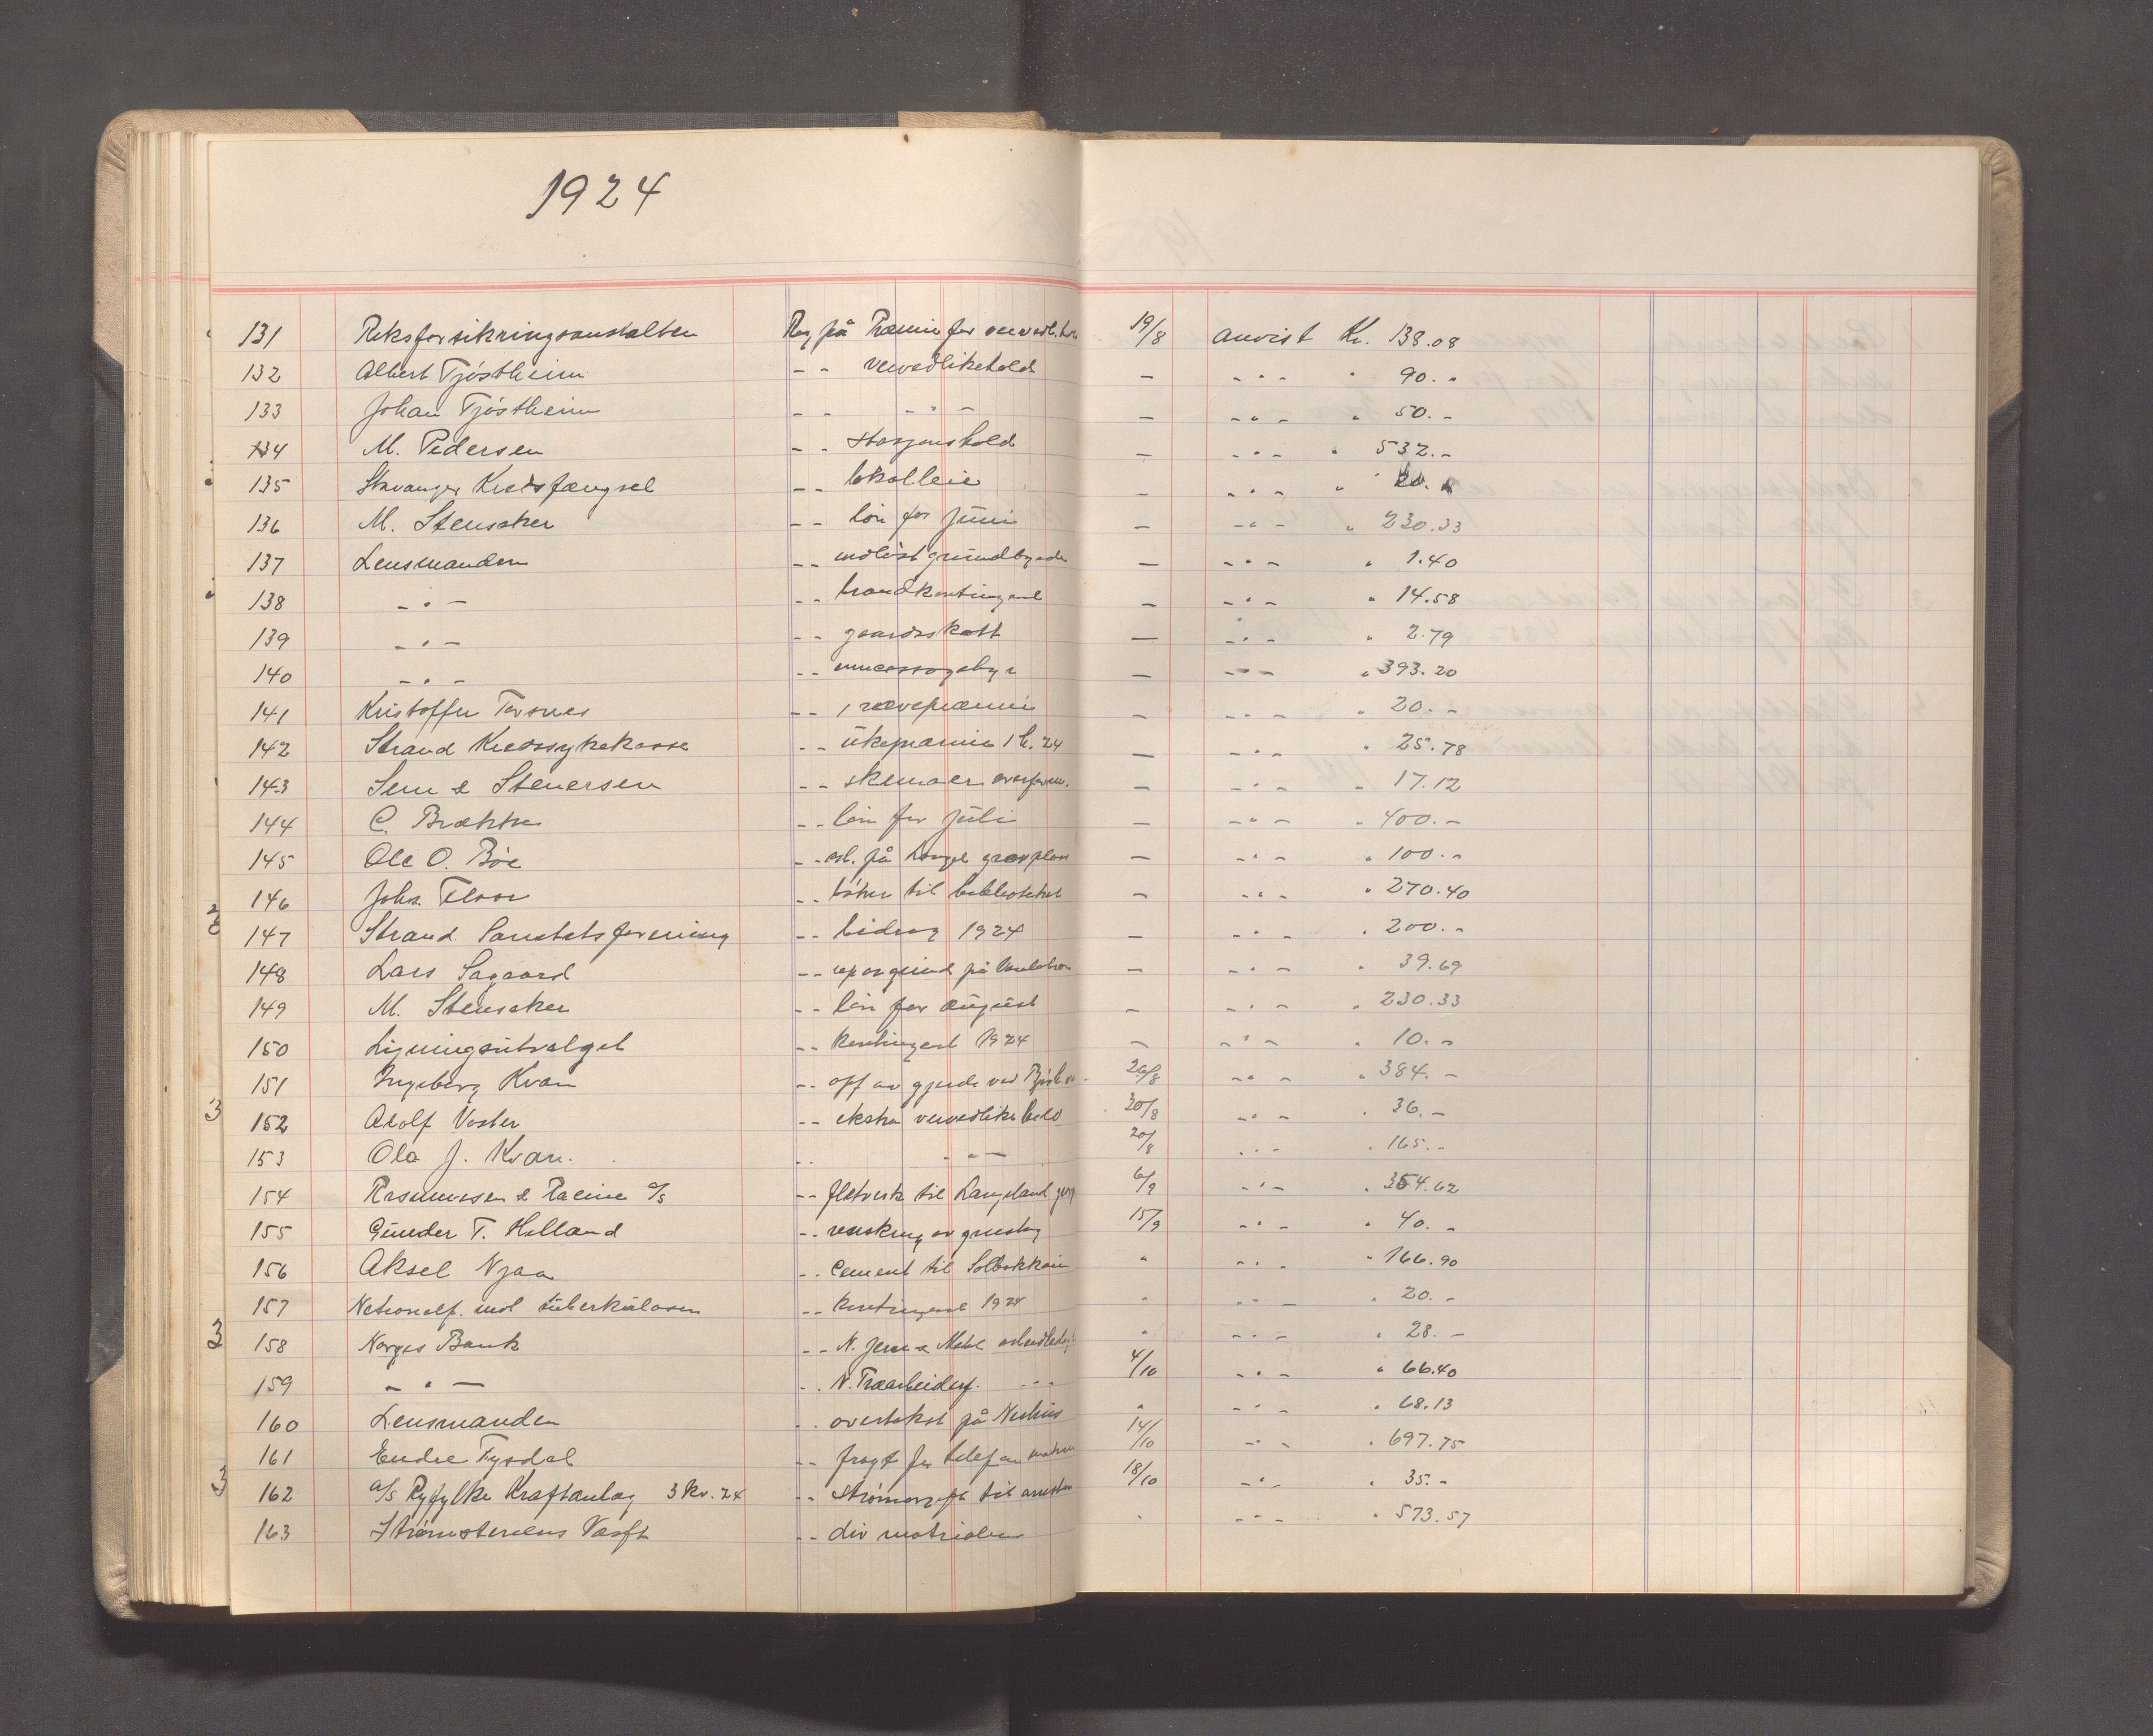 1924
131 Riksforsikringsanstalten Reg på Præmie for 19/8 anvist Kr. 138.08
132 Albert Tjöstheim - - veivedlikehold — - " - " 90. "
133 Johan Tjöstheim - - - " - — - " - " 50. -
134 M. Pedersen - - skysjonshold — - " - " 532. -
135 Stavanger Kredsfængsel - - lokalleie — - " - " 20.
136 M. Stensaker - - lön for juni — - " - " 230.33
137 Lensmanden - - indlöst — - " - " 1.40
138 - " - - - brandkontingent — - " - " 14.58
139 - " - - - gaardsskatt — - " - " 2.79
140 - " - - - — - " - " 393.20
141 Kristoffer Tarsnes - - 1 rævepræmie — - " - " 20. -
142 Strand Kredssykekasse - - ukepræmie 1 h. 24 — - " - " 25.78
143 Sem & Stenersen - - skemaer — - " - " 17.12
144 C. Brække - - lön for juli — - " - " 400. -
145 Ole O. Böe - - arb. på gravplass — - " - " 100. -
146 Johs. Floor - - böker til biblioteket — - " - " 270.40
147 Strand Sanitetsforening - - bidrag 1924 — - " - " 200. -
148 Lars Sagaard - - på — - " - " 39.69
149 M. Stensaker - - lön for august — - " - " 230.33
150 Ligningsutvalget - - kontingent 1924 — - " - " 10. -
151 Ingeborg Kvam - - opf av gjerde ved 26/8 - " - " 384. -
152 Adolf Voster - - ekstra veivedlikehold 30/8 - " - " 36. -
153 Ola J. Kvam. - - - " - 20/8 - " - " 165. -
154 Rasmussen & Racine A/S - - fletverk til Langeland 6/9 - " - " 354.62
155 Gunder T. Helland - - renskning av grustag 15/9 - " - " 40. -
156 Aksel Njaa - - Cement til Solbakkain " - " - " 166.90
157 Nationalf. mot tuberkulosen - - kontingent 1924 " - " - " 20. -
158 Norges Bank - - N. Jern & Metal " - " - " 28. -
159 - " - - - N. Træarbeiderf. - " - 4/10 - " - " 66.40
160 Lensmanden - - overtakst på " - " - " 68.13
161 Endre Fysdal - - fragt for telefon 14/10 - " - " 697.75
162 A/S Ryfylke Kraftanlæg 3 kv. 24 - - til arresten 18/10 - " - " 35. -
163 Strömsteinens Værft - - div materialer " - " - " 573.57